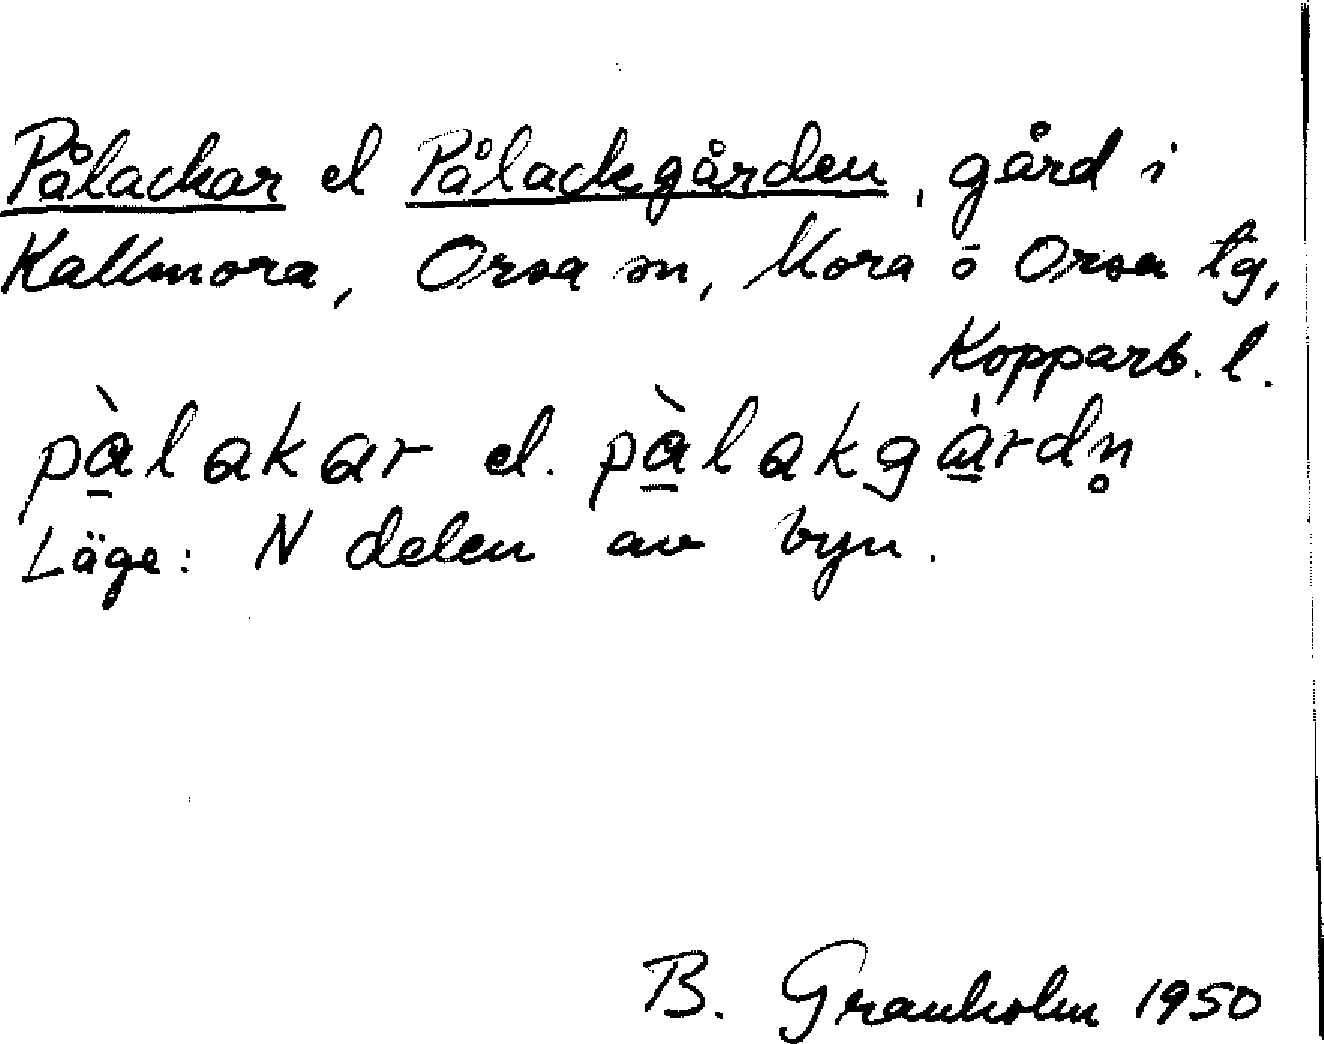 Pålackar el Pålackgården, gård i
Kallmora, Orsa sn, Mora o Orsa tg,
Kopparb. l.
pàlakar el. pàlakgàrdn̥
Läge: N delen av byn.
B. Granholm 1950